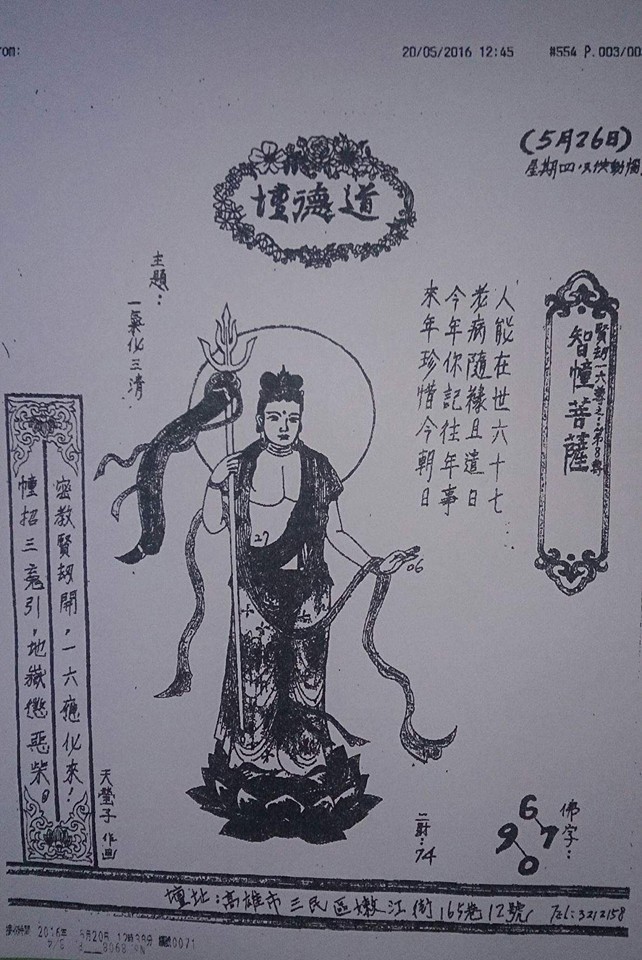 rom:
20/05/2016 12:45 #554 P.003/00
(5月26日)
星期四.只供動腦
道德壇
賢劫一六尊之:第8尊
智幢菩薩
人能在世六十七
老病隨緣且遣日
今年你記往年事
來年珍惜今朝日
主題:
一氣化三清
27
06
密教賢劫開,一六應化來!
幢招三竟引,地嶽懲惡柴。
天瑩子 作画
二財:74
佛字:
6
9 7
0
壇址:高雄市三民區嫩江街165巷12號 Tel:3212158
2016年 5月20日 12時38分 0071